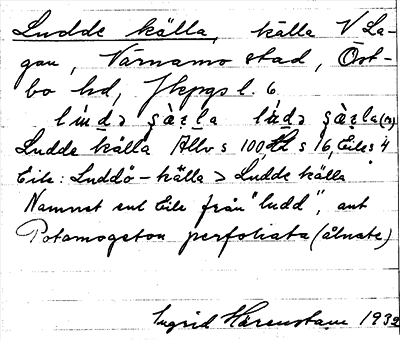 Ludde källa, källa V La-
gan, Värnamo stad, Öst-
bo hd, Jkpgs l. 6
Ludde källa Allv s 100, s 16, Eile s 4
Eile: Luddö-källa > Ludde källa
Namnet enl Eile från "ludd", ant
Potamogeton perfoliata (ålnate)
Ingrid Härenstam 1932